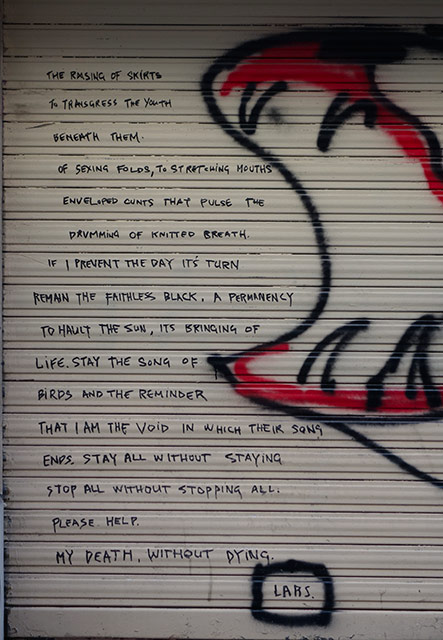 THE RAISING OF SKIRTS
TO TRANSGRESS THE YOUTH
BENEATH THEM.
OF SEXING FOLDS, TO STRETCHING MOUTHS
ENVELOPED CUNTS THAT PULSE THE
DRUMMING OF KNITTED BREATH.
IF I PREVENT THE DAY IT'S TURN
REMAIN THE FAITHLESS BLACK. A PERMANENCY
TO HAULT THE SUN, ITS BRINGING OF
LIFE. STAY THE SONG OF
BIRDS AND THE REMINDER
THAT I AM THE VOID IN WHICH THEIR SONG
ENDS. STAY ALL WITHOUT STAYING
STOP ALL WITHOUT STOPPING ALL.
PLEASE HELP.
MY DEATH, WITHOUT DYING.
LARS.